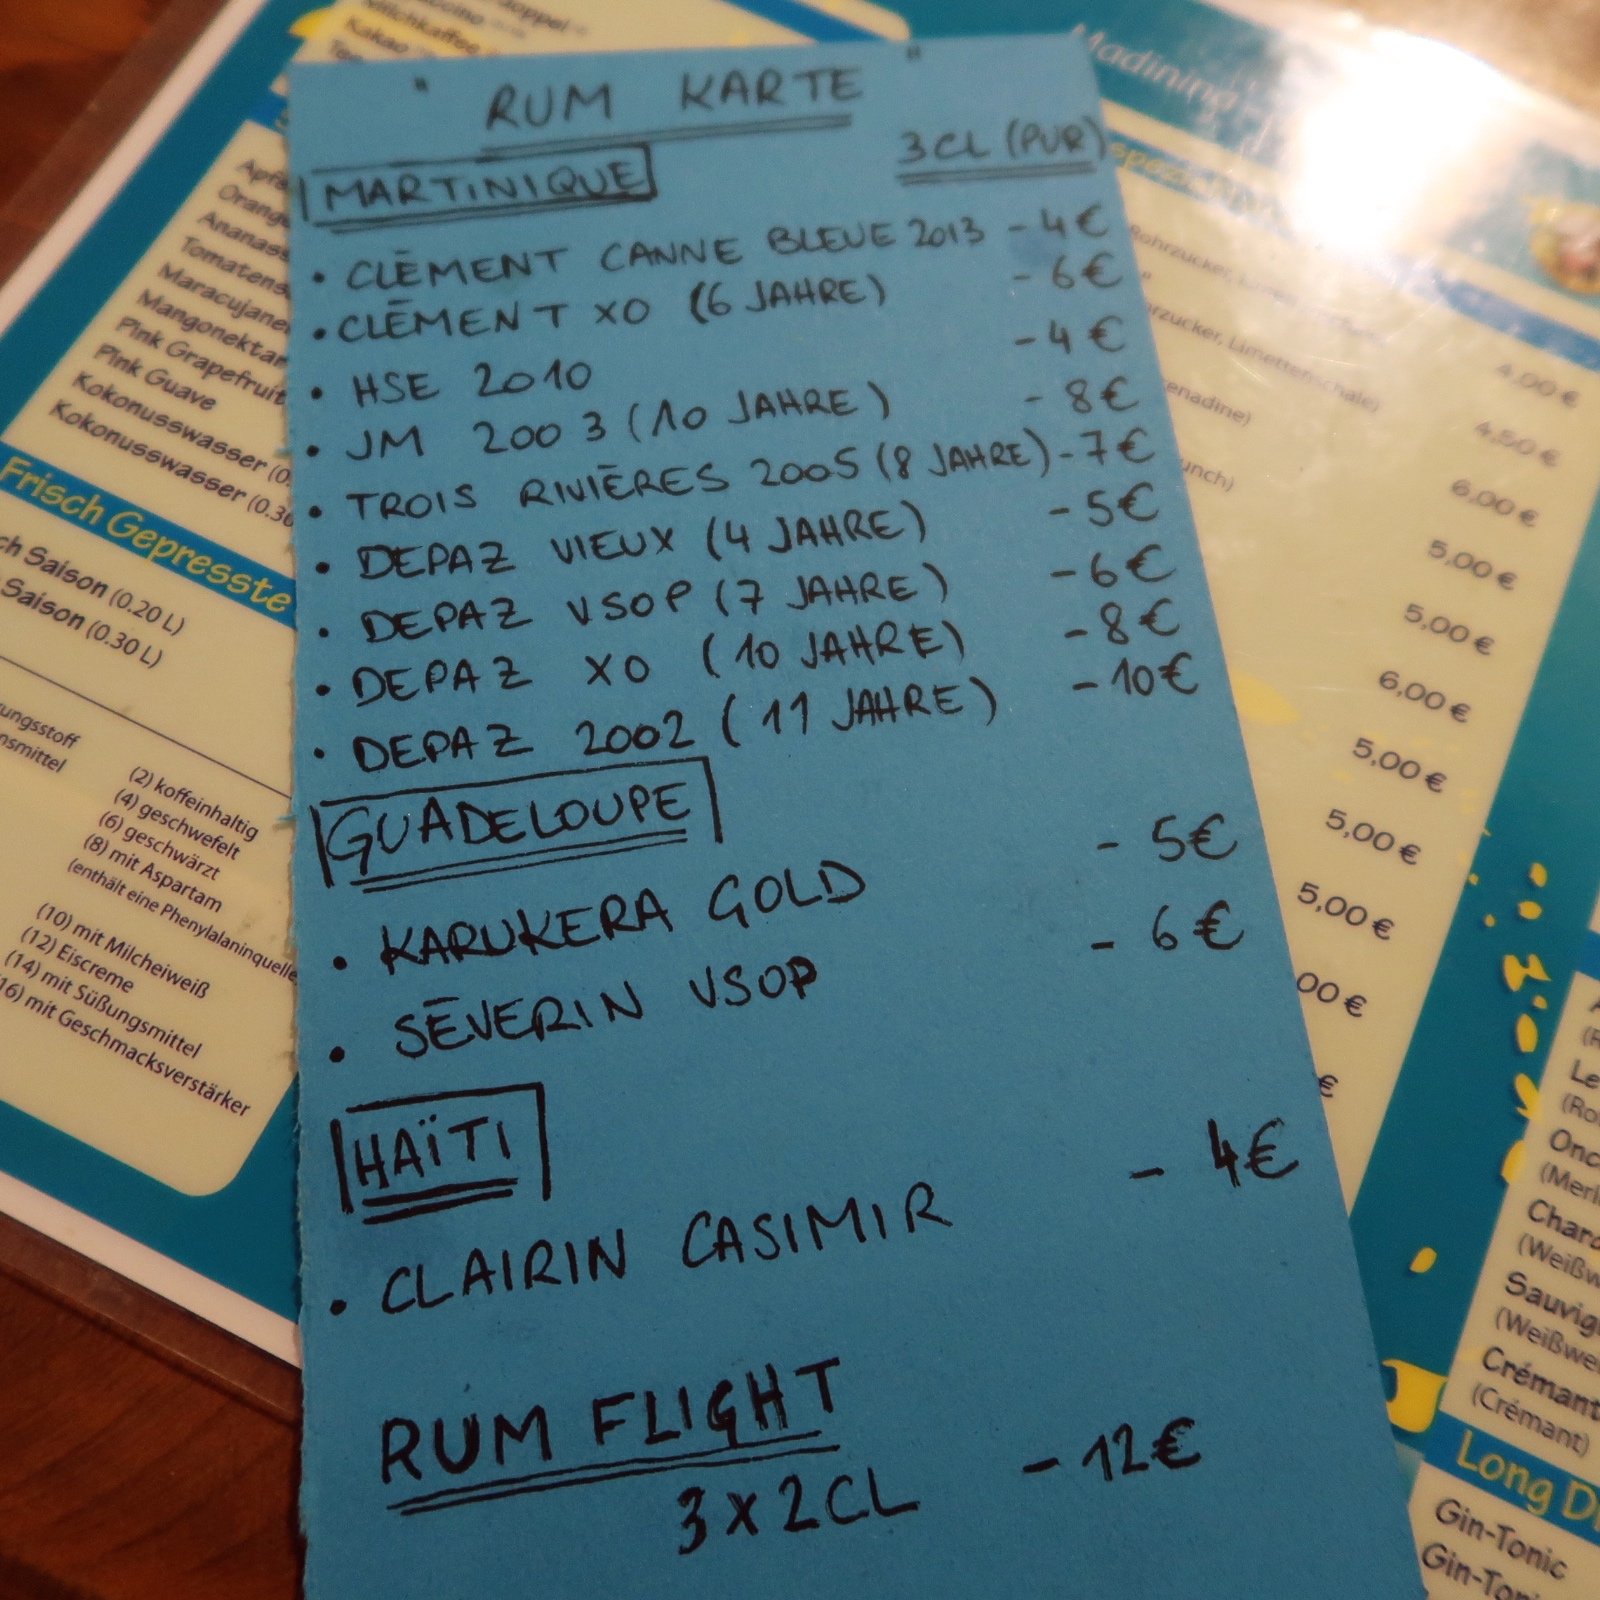 " RUM KARTE "
3CL (PUR)
MARTINIQUE
• CLÉMENT CANNE BLEUE 2013 - 4€
• CLÉMENT XO (6 JAHRE) - 6€
• HSE 2010 - 4€
• JM 2003 (10 JAHRE) - 8€
• TROIS RIVIÈRES 2005 (8 JAHRE) - 7€
• DEPAZ VIEUX (4 JAHRE) - 5€
• DEPAZ VSOP (7 JAHRE) - 6€
• DEPAZ XO (10 JAHRE) - 8€
• DEPAZ 2002 (11 JAHRE) - 10€
GUADELOUPE
• KARUKERA GOLD - 5€
• SÉVERIN VSOP - 6€
HAÏTI
• CLAIRIN CASIMIR - 4€
RUM FLIGHT
3 x 2CL - 12€
Milchkaffee
Kakao
Orange
Ananass
Tomatens
Maracujane
Mangonektar
Pink Grapefruit
Pink Guave
Kokonusswasser (0.
Kokonusswasser (0.30
Frisch Gepresste
ch Saison (0.20 L)
Saison (0.30 L)
ungsstoff
nsmittel
(2) koffeinhaltig
(4) geschwefelt
(6) geschwärzt
(8) mit Aspartam
(enthält eine Phenylalaninquelle
(10) mit Milcheiweiß
(12) Eiscreme
(14) mit Süßungsmittel
16) mit Geschmacksverstärker
Madinina
Rohrzucker,
rzucker, Limettenschale)
enadine)
unch)
4,00 €
4,50 €
6,00 €
5,00 €
5,00 €
6,00 €
5,00 €
5,00 €
5,00 €
00 €
€
Le
(Ro
Onc
(Merl
Char
(Weißw
Sauvig
(Weißwe
Crémant
(Crémant)
Long D
Gin-Tonic
Gin-Ton